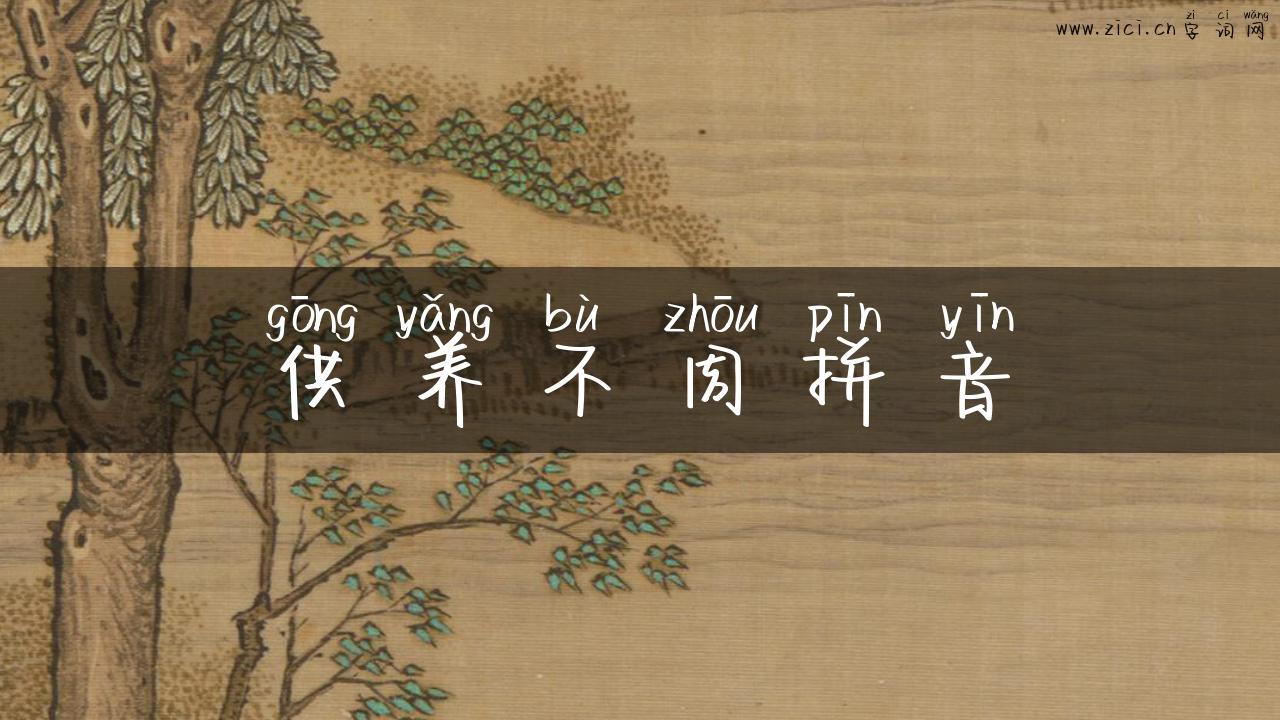 zì cí wǎng
www.zici.cn 字 词 网
gōng yǎng bù zhōu pīn yīn
供 养 不 周 拼 音